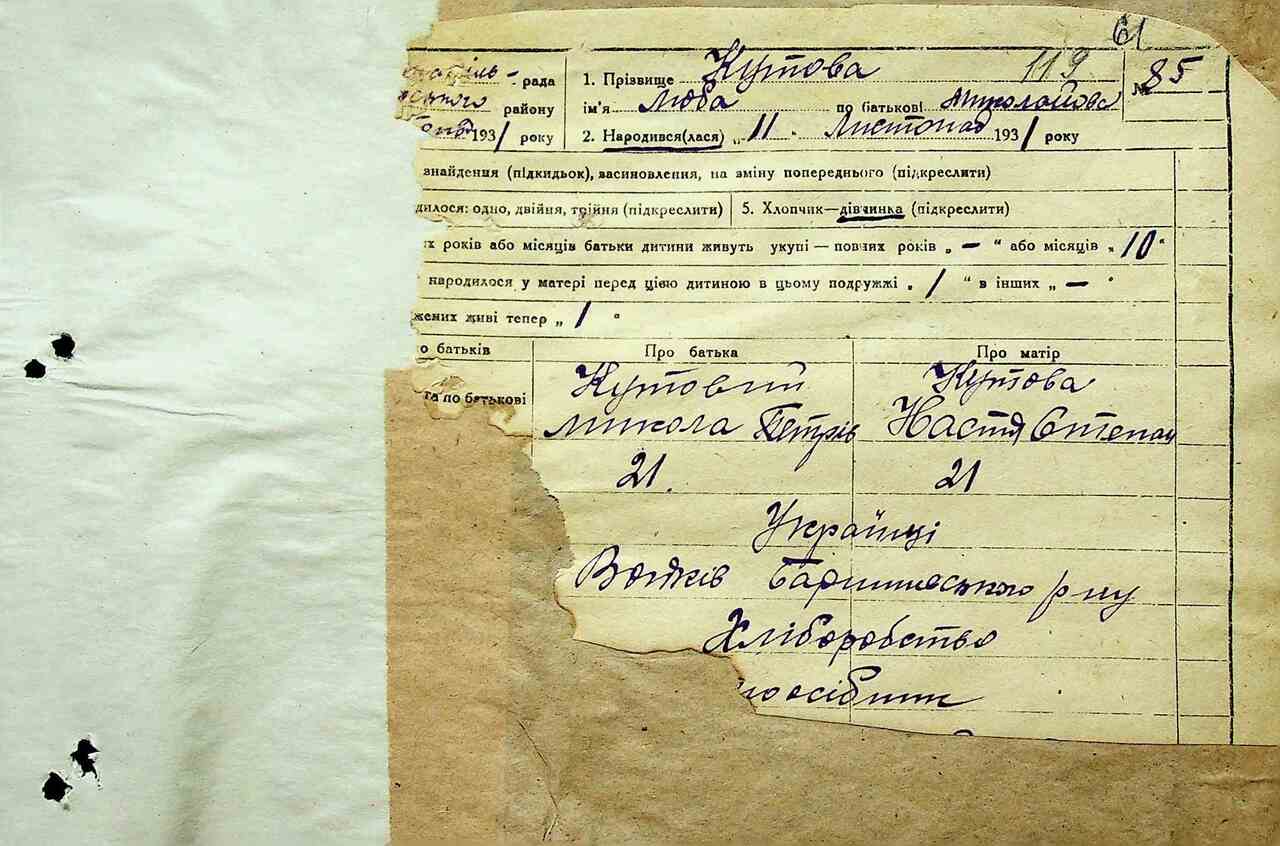 61
рада 1. Прізвище Кутова 119 № 85
районy ім'я Люба по батькові Миколайовa
193 1 року 2. Народився(лася) „ 11 " Листопад 193 1 року
знайдення (підкидьок), васиновлення, на зміну попереднього (підкреслити)
дилося: одно, двійня, трійня (підкреслити) 5. Хлопчик—дівчинка (підкреслити)
их років або місяців батьки дитини живуть укупі — повних років „ — " або місяців „ 10 "
народилося у матері перед цією дитиною в цьому подружжі „ 1 " в інших „ — "
жених живі тепер „ 1 "
о батьків Про батька Про матір
Кутовий Кутова
та по батькові Микола Петрів Настя Степан
21. 21
Українці
Баришевського р ну
Хліборобство